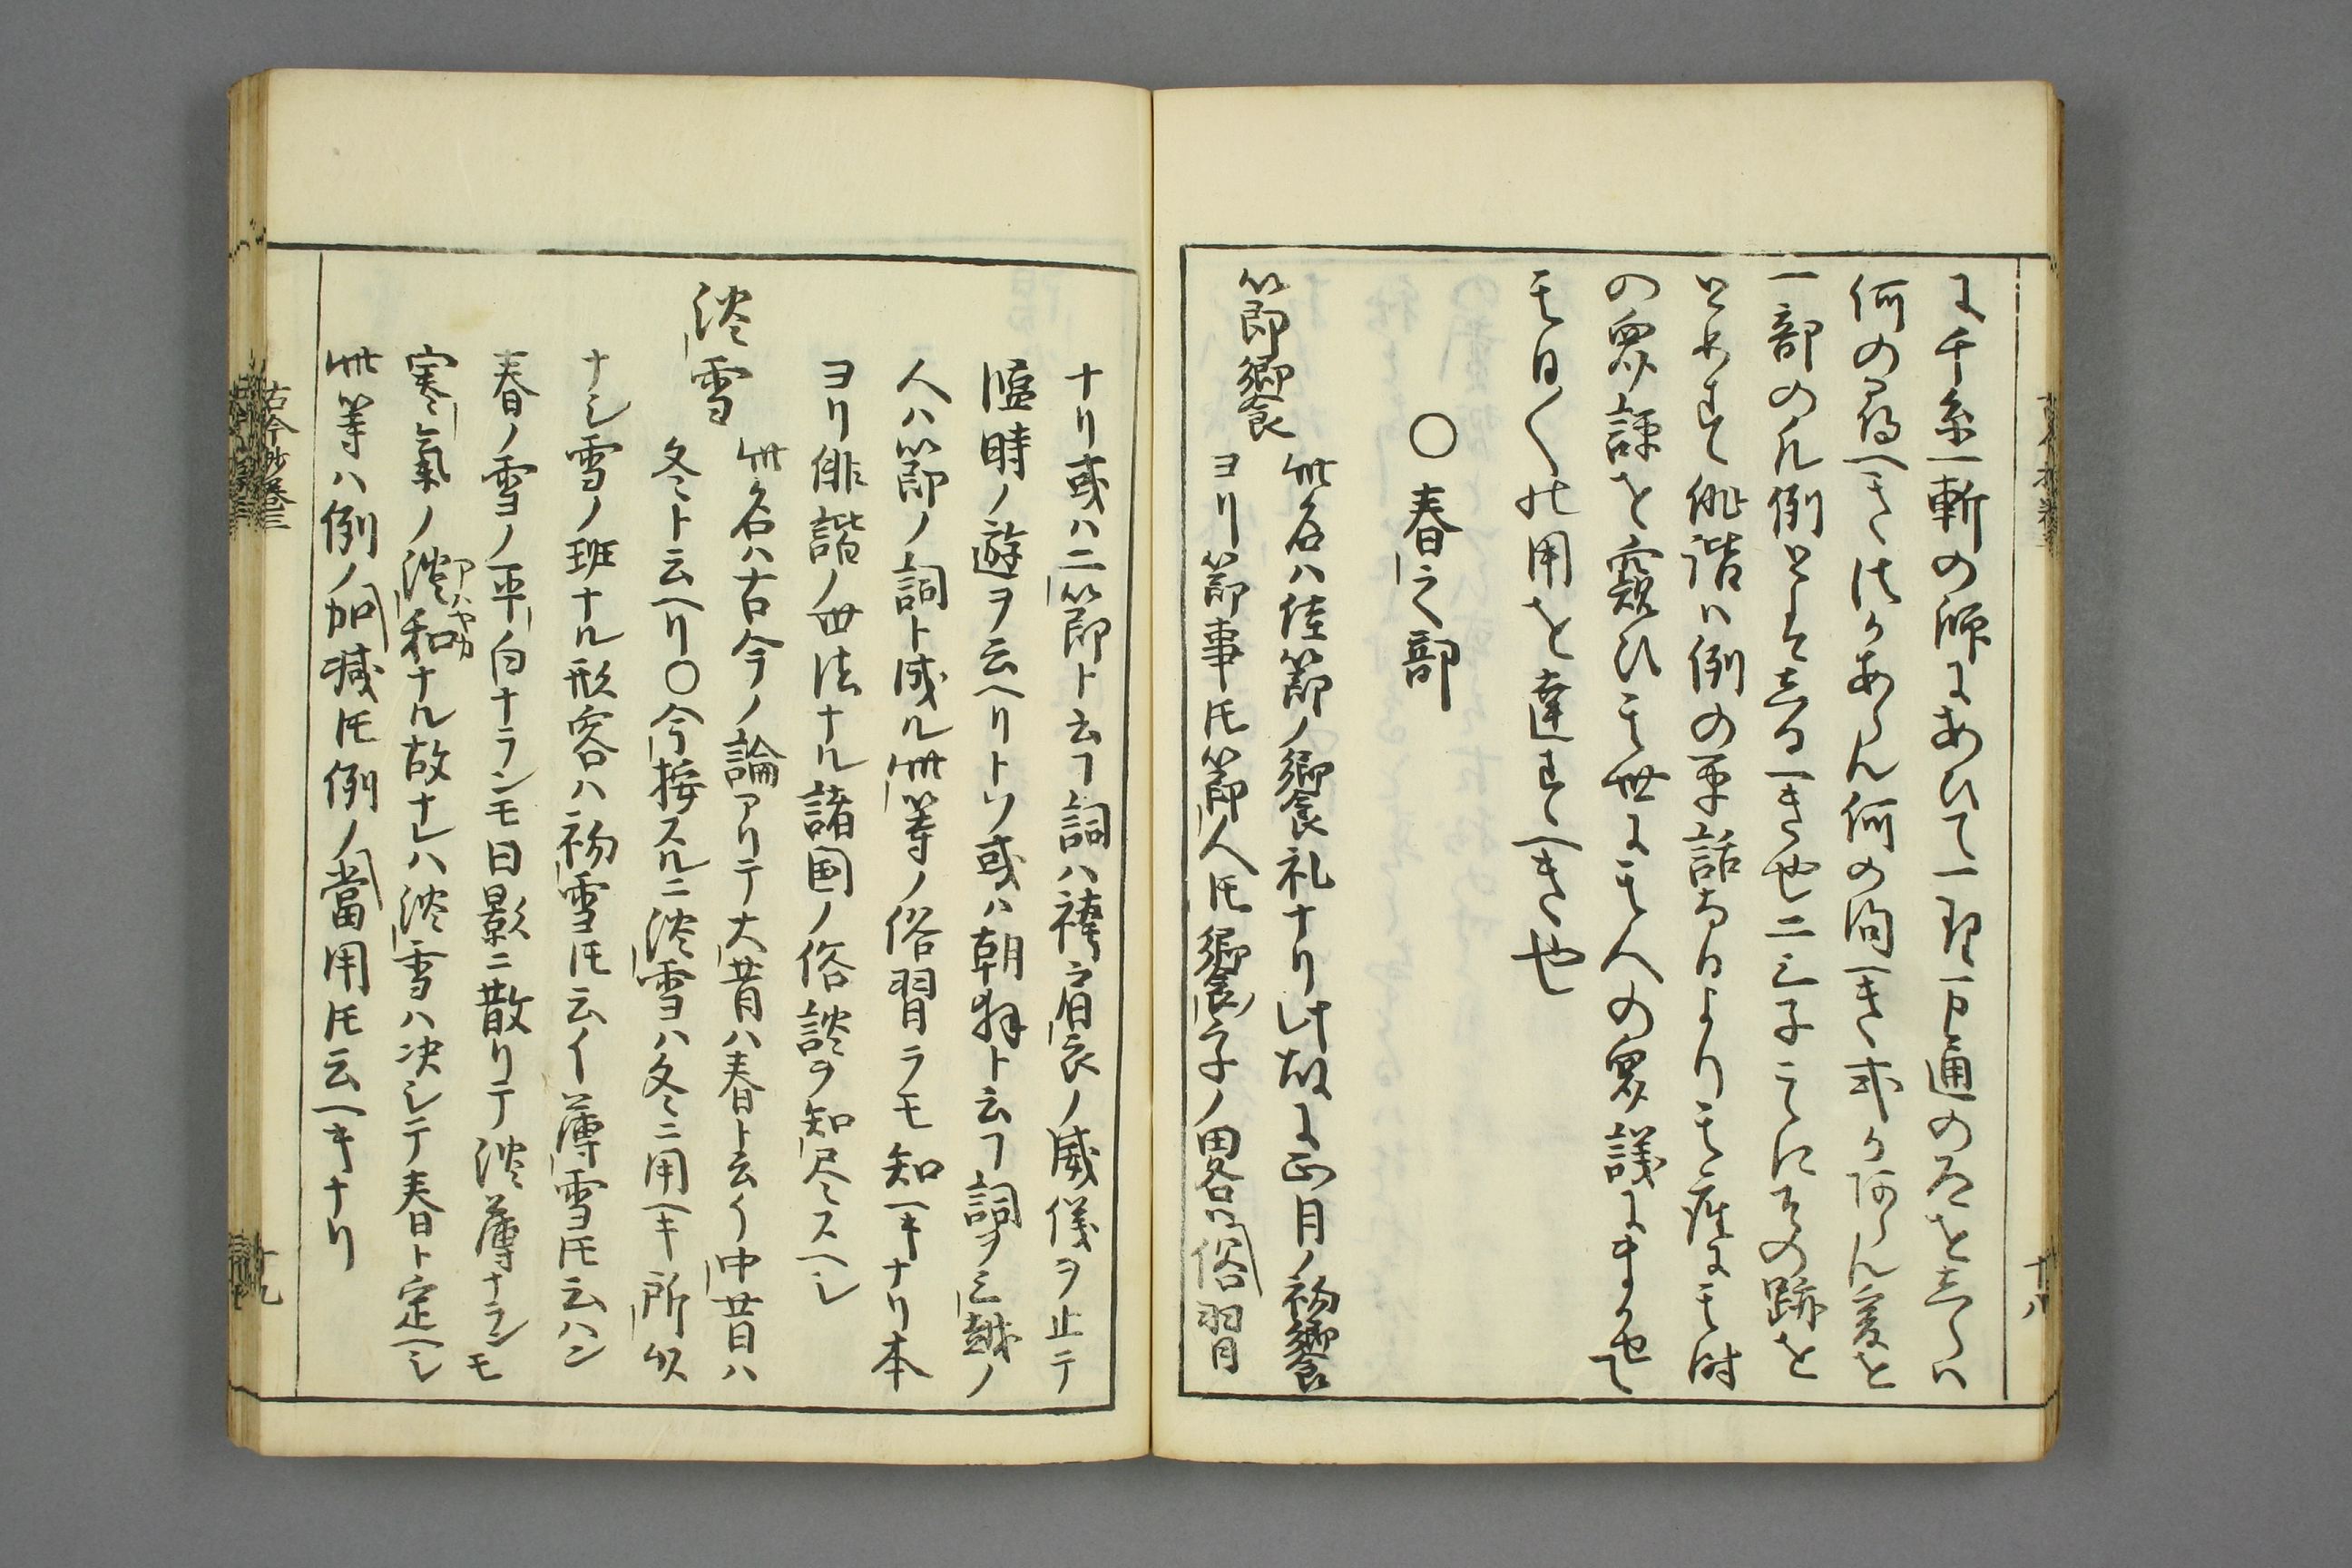 に千糸一斬の源にあひて一理万通の名をしらハ
何の尋へき法かあらん何の問へき求か何らん爰を
一部の凡例とはしるへき也二三子こゝにその跡を
とめすして俳諧ハ例の平話なるよりも其座に其時
の衆評を窺ひ其世に其人の衆議にまかせて
其日〱の用を達すへき也
○春之部
節饗
此名ハ佳節ノ饗礼ナリ此故に正月ノ初饗
ヨリ節事トモ節人トモ饗子ノ畧ハ俗習
古今抄巻三
十八
ナリ或ハ二節ト云フ詞ハ袴肩衣ノ威儀ヲ止テ
臨時ノ遊ヲ云ヘリトソ或ハ朝拜ト云フ詞ヲ三越ノ
人ハ節ノ詞ト成ル此等ノ俗習ラモ知ヘキナリ本
ヨリ俳諧ノ世法ナル諸国ノ俗談ヲ知尽スヘシ
淡雪
此名ハ古今ノ論アリテ大昔ハ春ト云イ中昔ハ
冬ト云ヘリ○今按スルニ淡雪ハ冬ニ用ヘキ所以
ナシ雪ノ班ナル形容ハ初雪トモ云イ薄雪トモ云ハン
春ノ雪ノ平白ナランモ日影ニ散リテ淡薄ナランモ
寒氣ノ淡和ナル故ナレハ淡雪ハ决シテ春ト定ヘシ
アハヤカ
此等ハ例ノ加減トモ例ノ當用トモ云ヘキナリ
古今抄巻三
十九